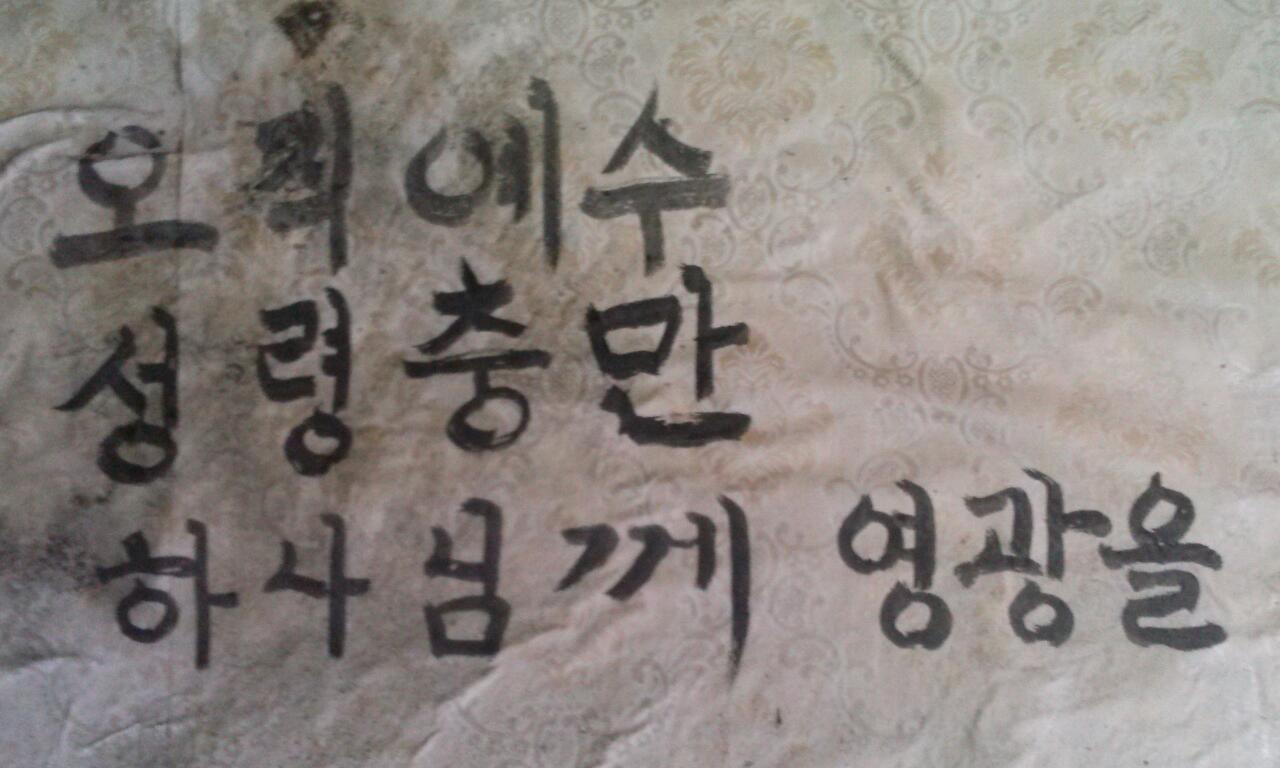 오 예수
성령충만
하사넘께 영광을